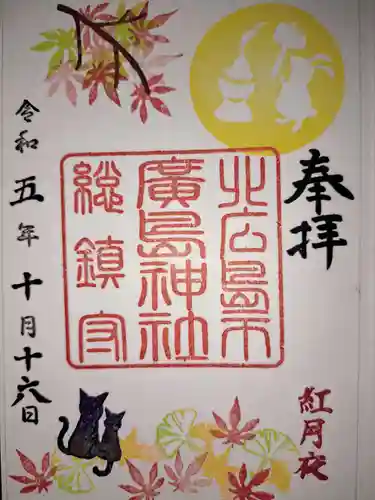 奉拝
北広島市
廣島神社
総鎮守
紅月夜
令和五年十月十六日